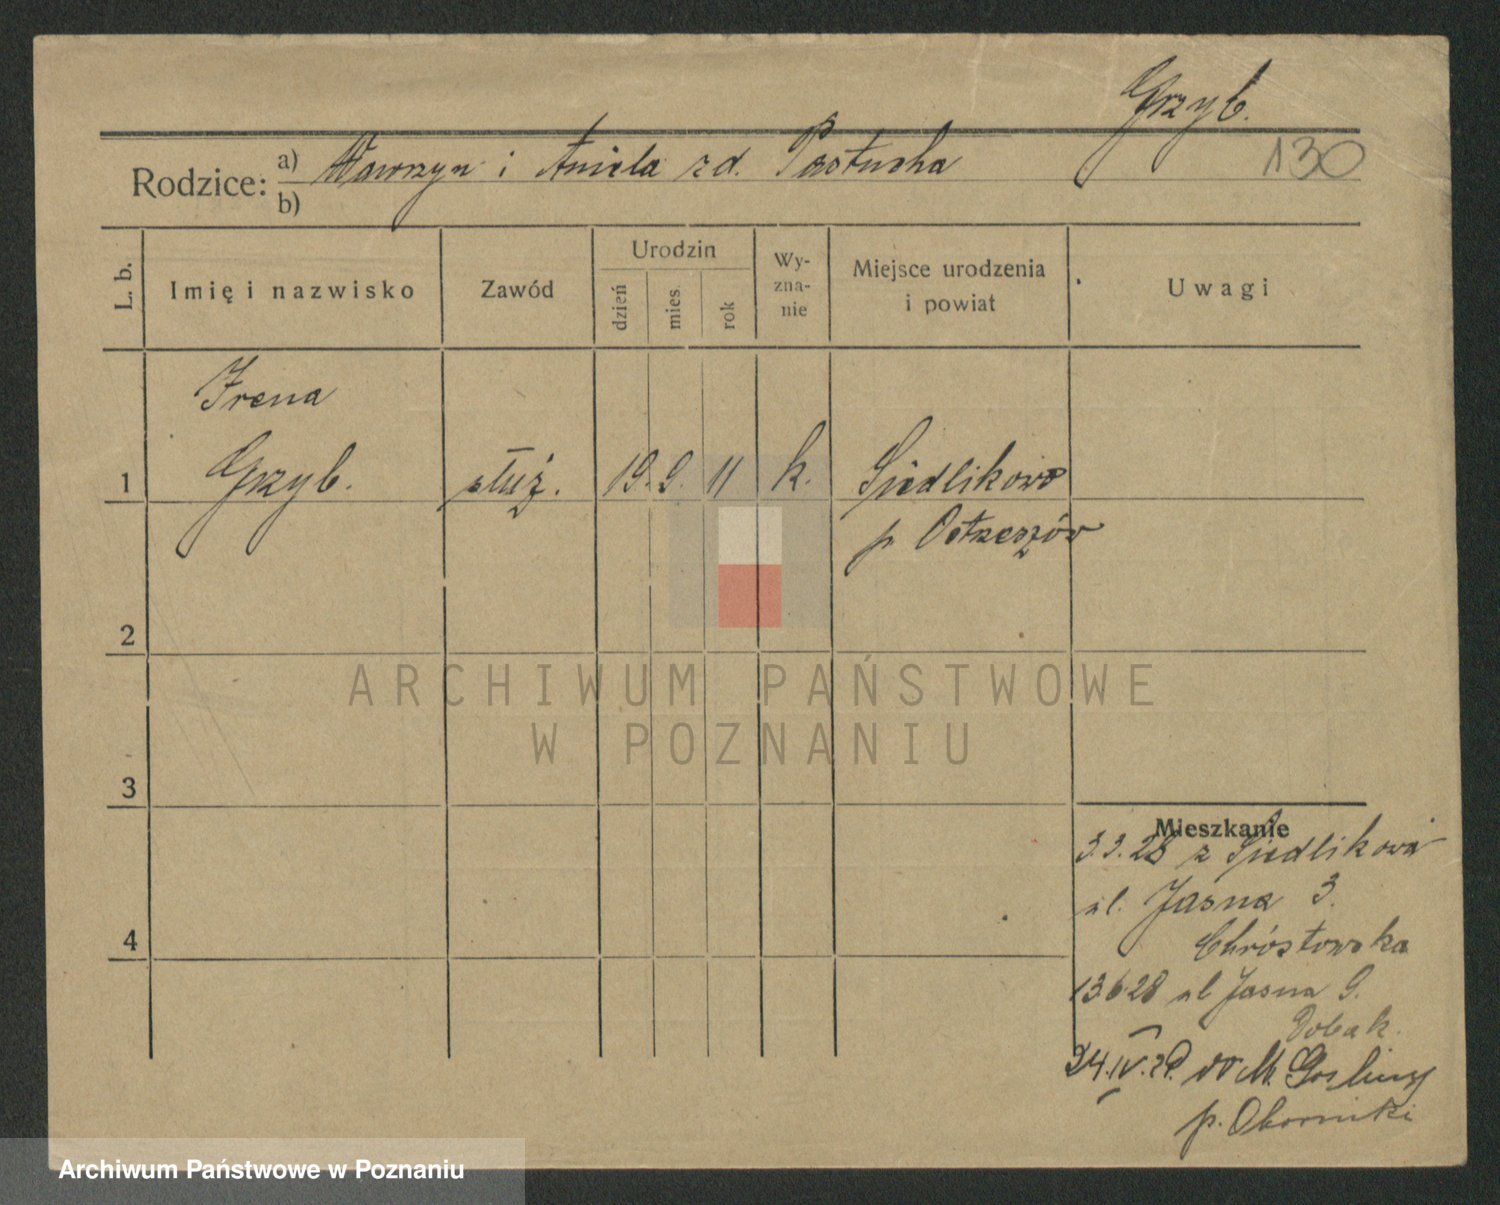 Grzyb.
130
Rodzice: a) Wawrzyn i Aniela zd. Pastucha
b)
L. b.
Imię i nazwisko
Zawód
Urodzin
dzień
mies.
rok
Wy-
zna-
nie
Miejsce urodzenia
i powiat
Uwagi
Irena
1 Grzyb. służ. 19. 9. 11 k. Siedlikowo
p Ostrzeszów
2
ARCHIWUM PAŃSTWOWE
W POZNANIU
3
Mieszkanie
3.3.28 z Siedlikowa
ul. Jasna 3.
Chróstowska
4
13.6.28 ul Jasna 9.
Dobak.
24.IV.29. do M. Gosliny
p. Oborniki
Archiwum Państwowe w Poznaniu